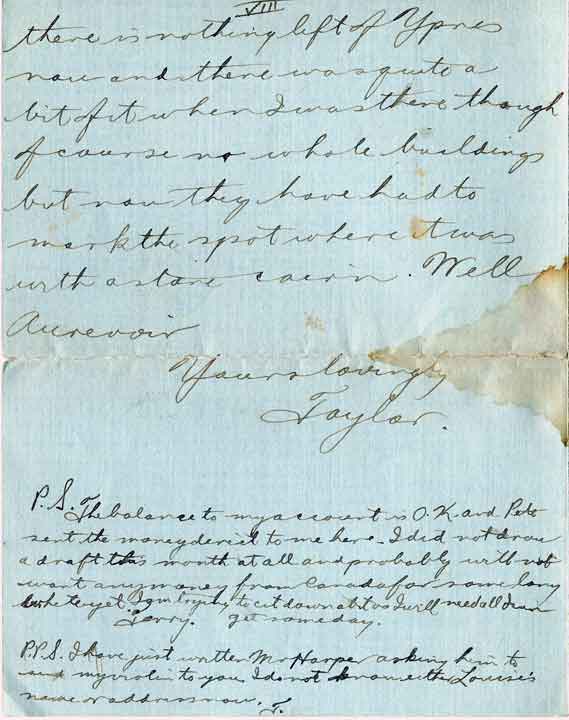 VIII
there is nothing left of Ypres
now and there was quite a
bit of it when I was there though
of course no whole buildings
but now they have had to
mark the spot where it was
with a stone cairn. Well
Aurevoir
Yours lovingly
Taylor.
P.S. The balance to my account is O.K. and Pete
sent the money direct to me here. I did not draw
a draft this month at all and probably will not
want any money from Canada for some long
while yet. I am trying to cut down a bit as I will need all I can
get some day.
P.P.S. I have just written Mr Harper asking him to
send my violin to you. I do not know either Louise's
name or address now. T.